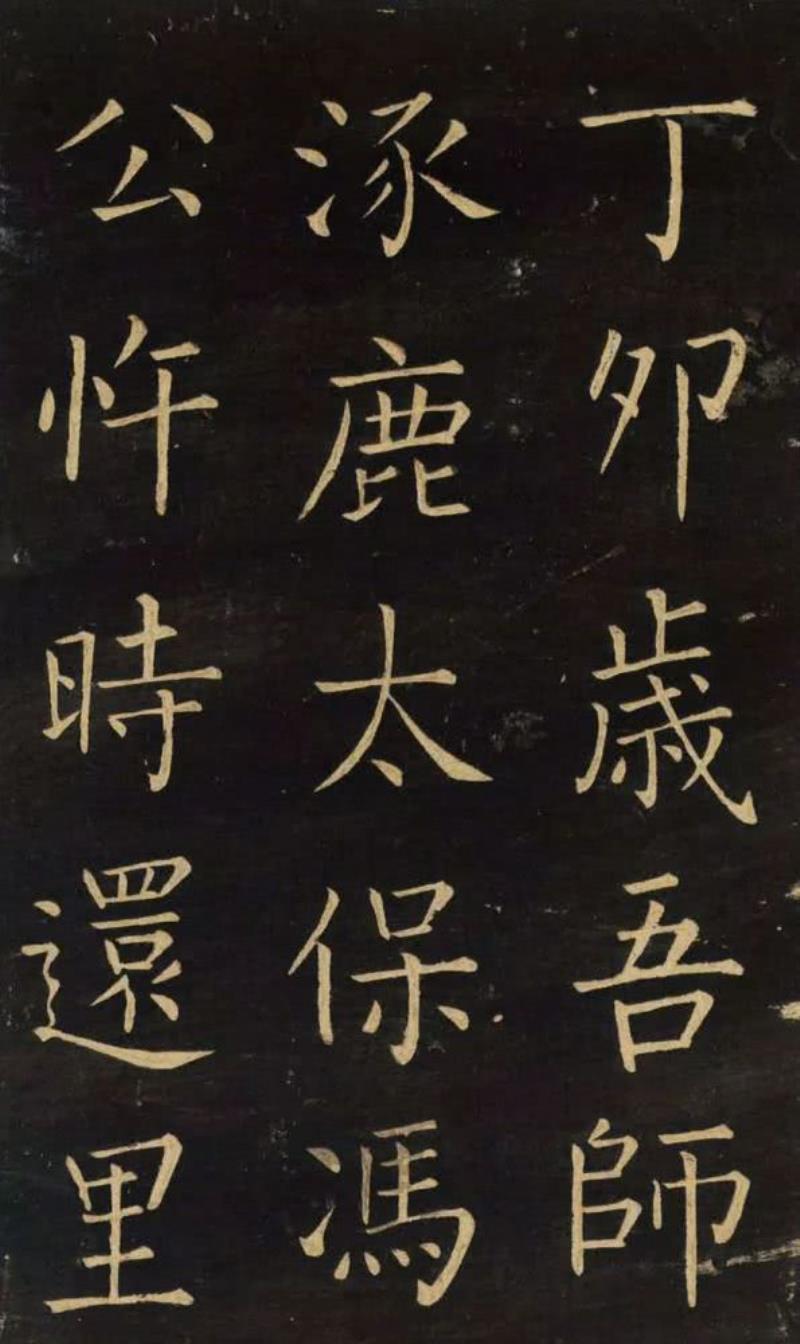 丁夘歳吾師
涿鹿太保馮
公忤時還里